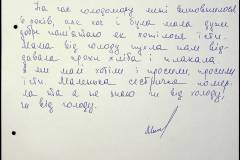 На час голодомору мені виповнилося
6 років, але хоч і була мала дуже
добре пам'ятаю як хотілося їсти.
Мама від голоду пухла нам від-
давала крохи хліба і плакала
а ми малі хотіли і просили, просили
їсти. Маленька сестричка помер-
ла та а не знаю чи від холоду
чи від голоду.